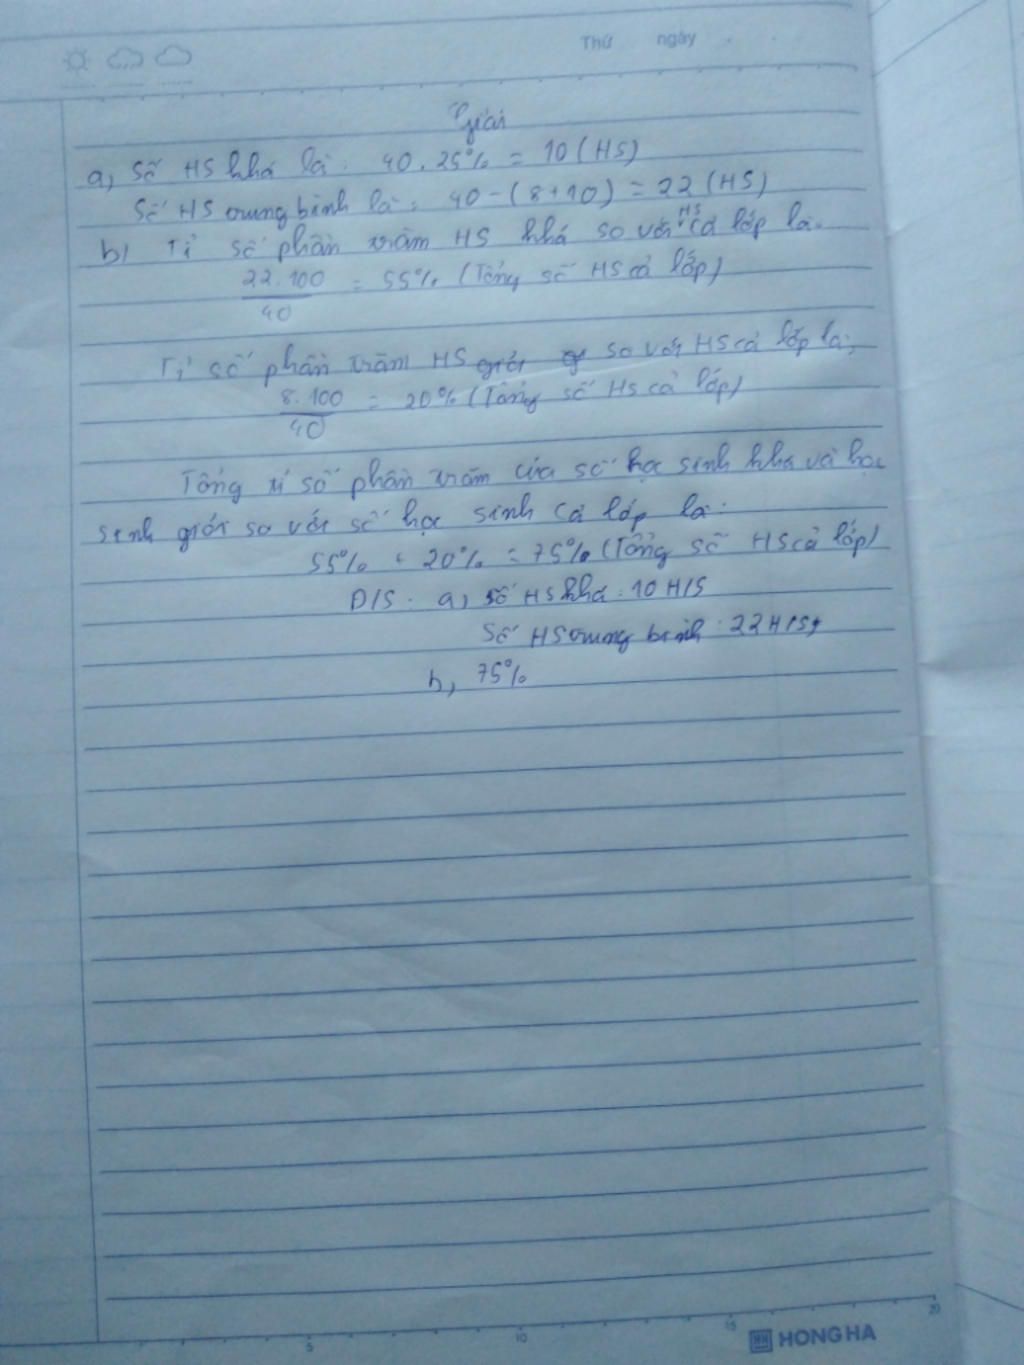 Thứ ngày
Giải
a, Số HS khá là: 40.25% = 10 (HS)
Số HS trung bình là: 40-(8+10) = 22 (HS)
b, Tỉ số phần trăm HS khá so với HS cả lớp là:
22.100/40 = 55% (Tổng số HS cả lớp)
Tỉ số phần trăm HS giỏi so với HS cả lớp là:
8.100/40 = 20% (Tổng số HS cả lớp)
Tổng tỉ số phần trăm của số học sinh khá và học
sinh giỏi so với số học sinh cả lớp là:
55% + 20% = 75% (Tổng số HS cả lớp)
Đ/S: a, Số HS khá: 10 H/S
Số HS trung bình: 22 H/S
b, 75%
5 10 15 20
HONG HA